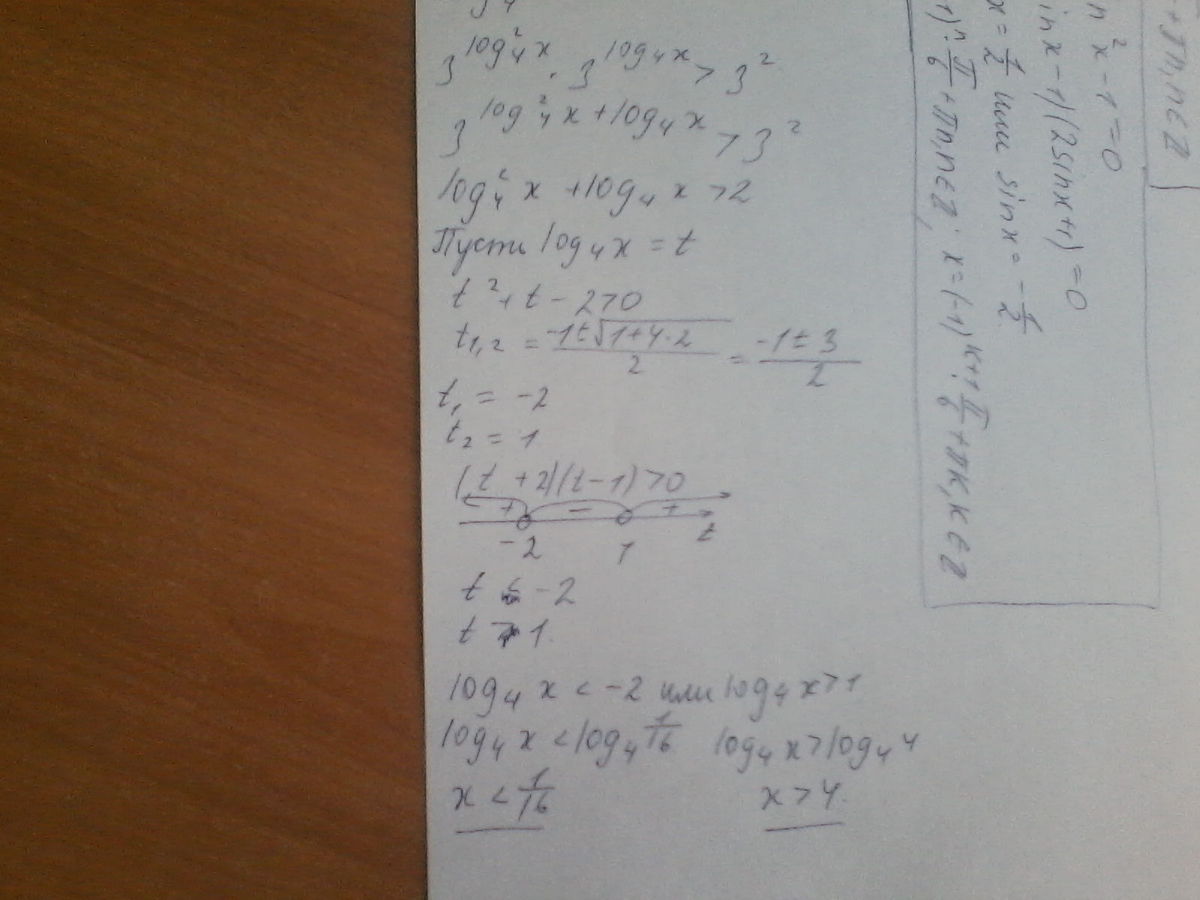 3^{log_4^2 x} · 3^{log_4 x} > 3^2
3^{log_4^2 x + log_4 x} > 3^2
log_4^2 x + log_4 x > 2
Пусть log_4 x = t
t^2 + t - 2 > 0
t_{1,2} = \frac{-1 ± √(1+4·2)}{2} = \frac{-1 ± 3}{2}
t_1 = -2
t_2 = 1
(t + 2)(t - 1) > 0
+ - +
-2 1 t
t < -2
t > 1.
log_4 x < -2 или log_4 x > 1
log_4 x < log_4 \frac{1}{16} log_4 x > log_4 4
x < \frac{1}{16} x > 4.
+ πn, n ∈ Z
n^2 x - 1 = 0
in x - 1)(2 sin x + 1) = 0
x = \frac{1}{2} или sin x = -\frac{1}{2}
1)^n · \frac{π}{6} + πn, n ∈ Z; x = (-1)^{k+1} · \frac{π}{6} + πk, k ∈ Z